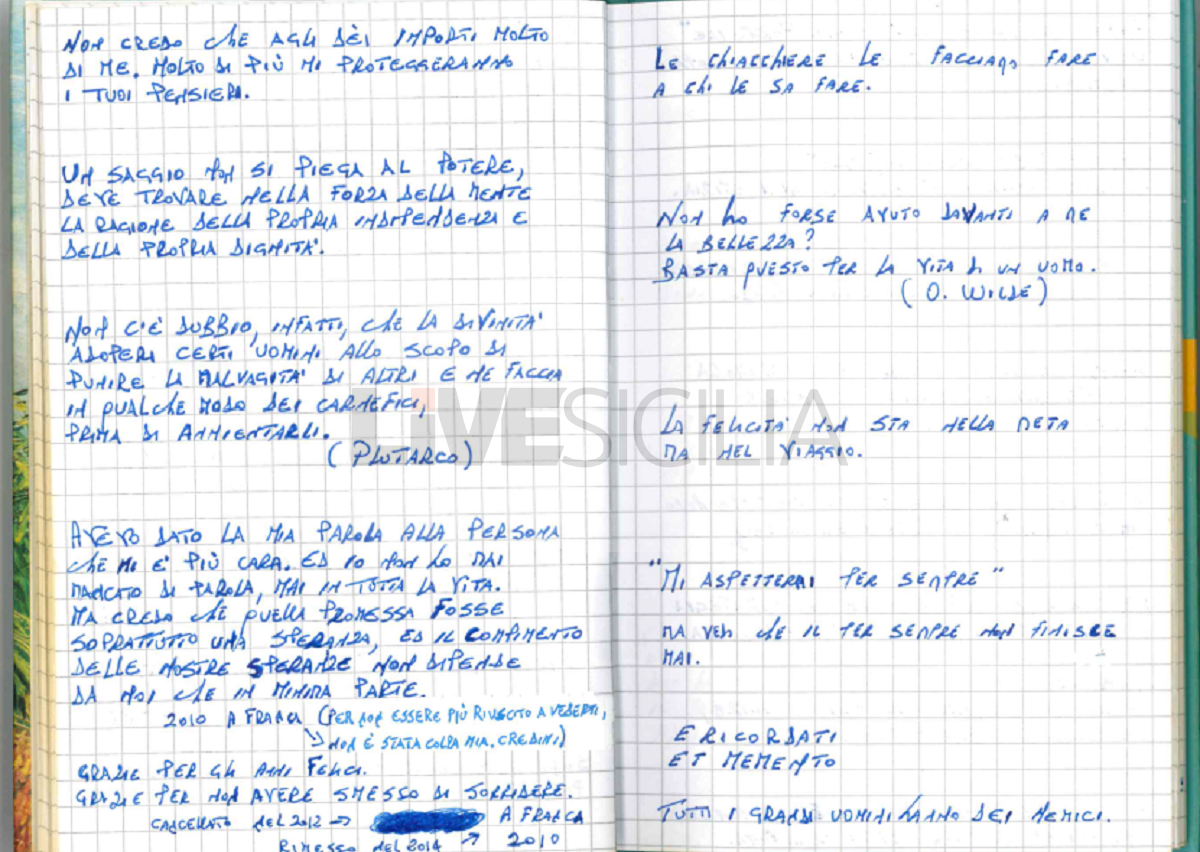 NON CREDO CHE AGLI DÈI IMPORTI MOLTO
DI ME. MOLTO DI PIÙ MI PROTEGGERANNO
I TUOI PENSIERI.
UN SAGGIO NON SI PIEGA AL POTERE,
DEVE TROVARE NELLA FORZA DELLA MENTE
LA RAGIONE DELLA PROPRIA INDIPENDENZA E
DELLA PROPRIA DIGNITÀ.
NON C'È DUBBIO, INFATTI, CHE LA DIVINITÀ
ADOPERI CERTI UOMINI ALLO SCOPO DI
PUNIRE LA MALVAGITÀ DI ALTRI E NE FACCIA
IN QUALCHE MODO DEI CARNEFICI,
PRIMA DI ANNIENTARLI.
(PLUTARCO)
AVEVO DATO LA MIA PAROLA ALLA PERSONA
CHE MI È PIÙ CARA. ED IO NON HO MAI
MANCATO DI PAROLA, MAI IN TUTTA LA VITA.
MA CREDO CHE QUELLA PROMESSA FOSSE
SOPRATTUTTO UNA SPERANZA, ED IL COMPIMENTO
DELLE NOSTRE SPERANZE NON DIPENDE
DA NOI CHE IN MINIMA PARTE.
2010 A FRANCA (PER NON ESSERE PIÙ RIUSCITO A VEDERTI,
NON È STATA COLPA MIA. CREDIMI)
GRAZIE PER GLI ANNI FELICI.
GRAZIE PER NON AVERE SMESSO DI SORRIDERE.
CANCELLATO NEL 2012 → A FRANCA
RIMESSO NEL 2014 → 2010
LE CHIACCHIERE LE FACCIAMO FARE
A CHI LE SA FARE.
NON HO FORSE AVUTO DAVANTI A ME
LA BELLEZZA?
BASTA QUESTO PER LA VITA DI UN UOMO.
(O. WILDE)
LA FELICITÀ NON STA NELLA META
MA NEL VIAGGIO.
"MI ASPETTERAI PER SEMPRE"
MA VEDI CHE IL PER SEMPRE NON FINISCE
MAI.
E RICORDATI
ET MEMENTO
TUTTI I GRANDI UOMINI HANNO DEI NEMICI.
LIVESICILIA